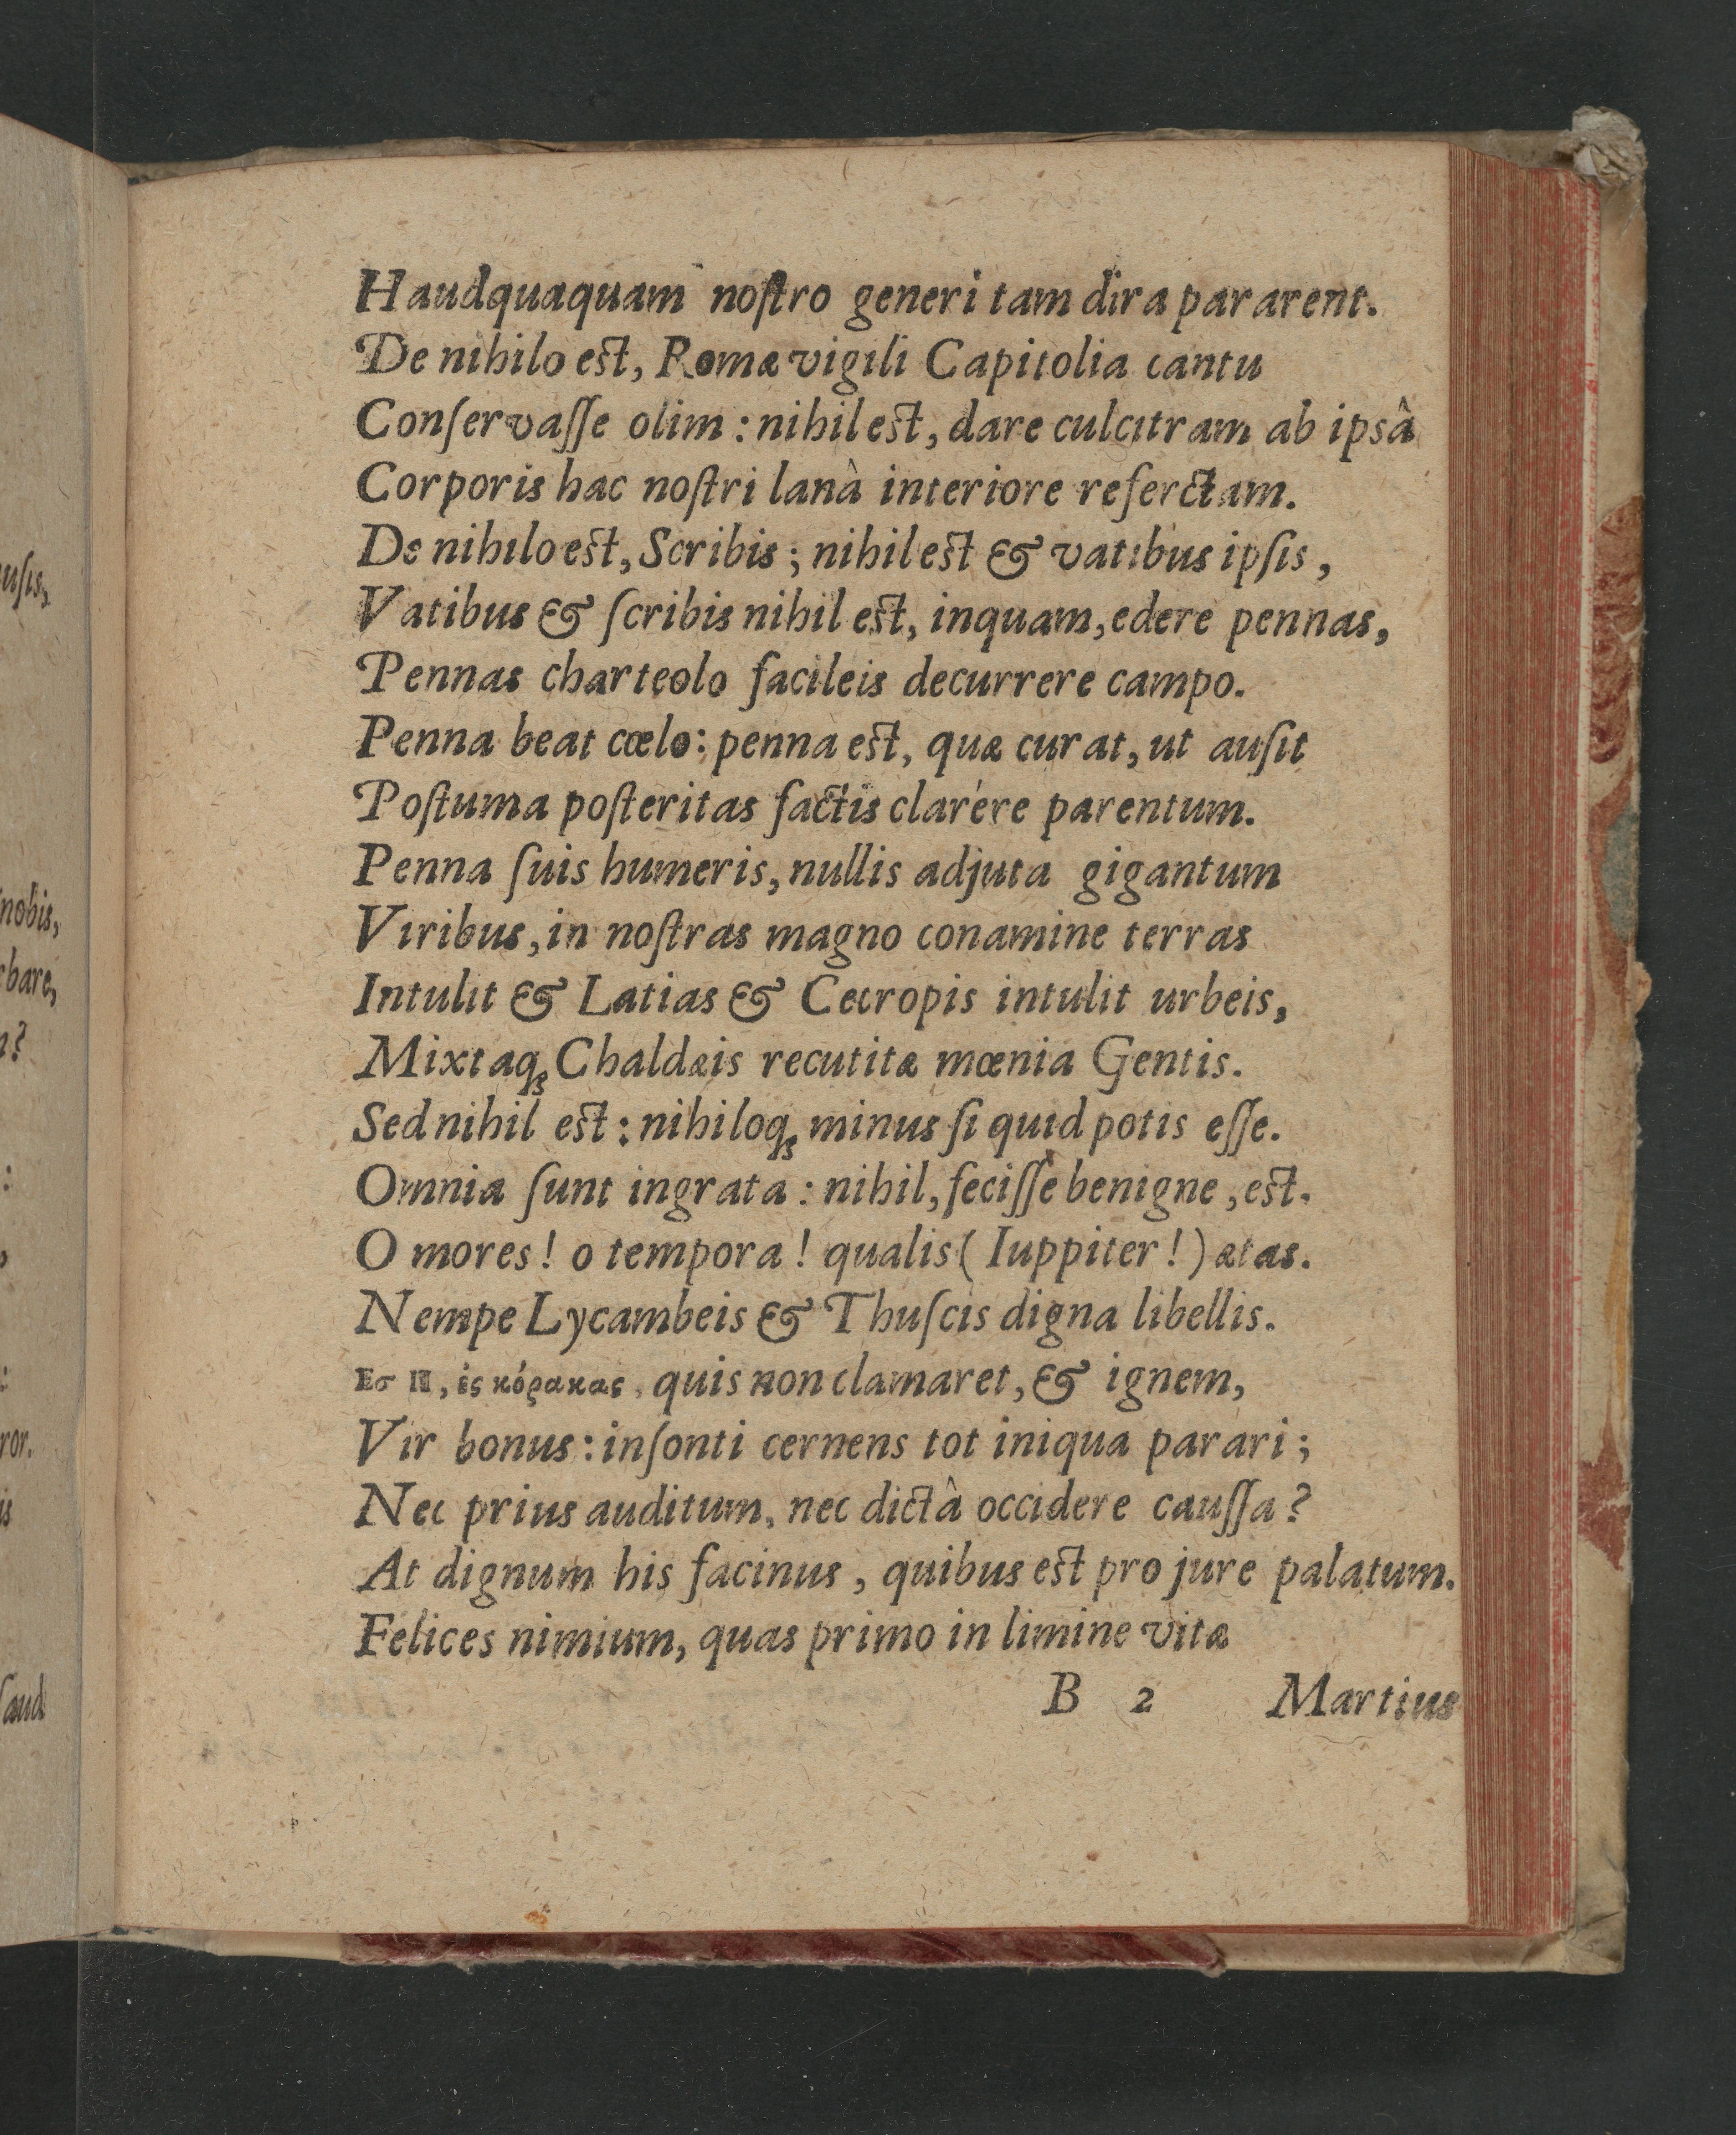 Haudquaquam noſtro generi tam dira pararent.
De nihilo est, Romæ vigili Capitolia cantu
Conſervaſſe olim: nihil est, dare culcitram ab ipsâ
Corporis hac noſtri lanà interiore referctam.
De nihilo est, Scribis; nihil est & vatibus ipſis,
Vatibus & ſcribis nihil est, inquam, edere pennas,
Pennas charteolo facileis decurrere campo.
Penna beat cœlo: penna est, quæ curat, ut auſit
Poſtuma poſteritas factis clarére parentum.
Penna ſuis humeris, nullis adjuta gigantum
Viribus, in noſtras magno conamine terras
Intulit & Latias & Cecropis intulit urbeis,
Mixtaq; Chaldæis recutitæ mœnia Gentis.
Sed nihil est: nihiloq; minus ſi quid potis eſſe.
Omnia ſunt ingrata: nihil, feciſſe benigne, est.
O mores! o tempora! qualis (Iuppiter!) ætas.
Nempe Lycambeis & Thuſcis digna libellis.
ἐς κόρακας, quis non clamaret, & ignem,
Vir bonus: inſonti cernens tot iniqua parari;
Nec prius auditum, nec dictâ occidere cauſſa?
At dignum his facinus, quibus est pro jure palatum.
Felices nimium, quas primo in limine vitæ
B 2 Martius
uſis,
nobis,
rbare,
?
:
:
ror.
is
ſaud